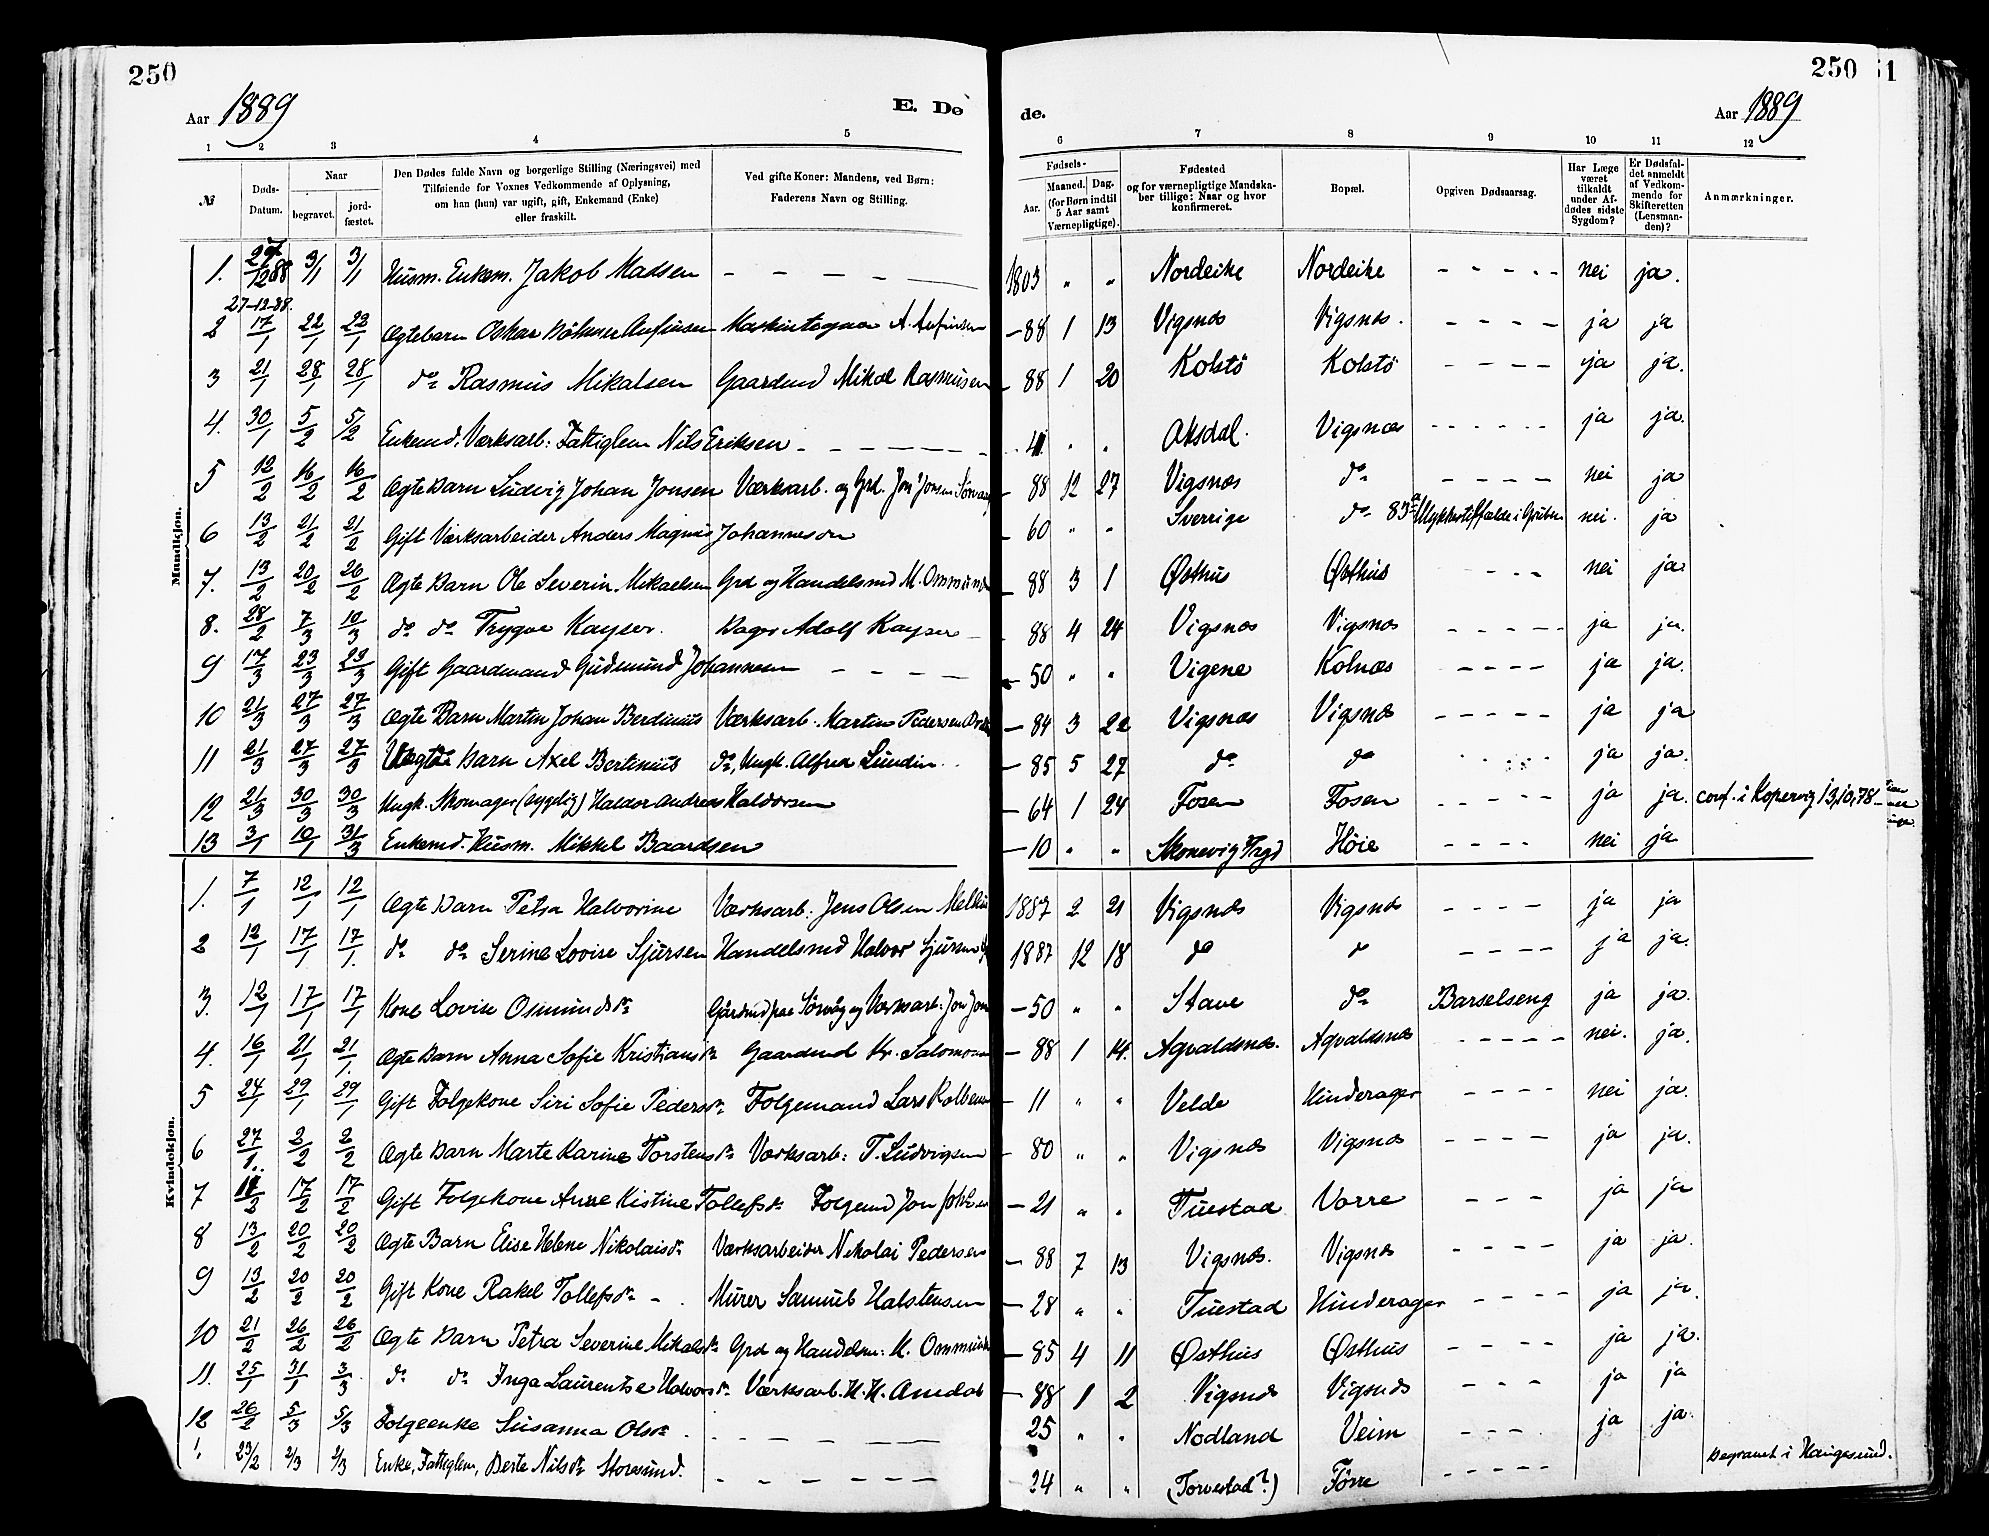 250
Aar 1889
E. Dø
de.
Aar 1889
250
1
1 2 3 4 5 6 7 8 9 10 11 12
№
Døds-Datum.
Naar
begravet.
jord-fæstet.
Den Dødes fulde Navn og borgerlige Stilling (Næringsvei) med
Tilføiende for Voxnes Vedkommende af Oplysning,
om han (hun) var ugift, gift, Enkemand (Enke)
eller fraskilt.
Ved gifte Koner: Mandens, ved Børn:
Faderens Navn og Stilling.
Fødsels-
Aar.
Maaned. Dag.
(for Børn indtil
5 Aar samt
Værnepligtige).
Fødested
og for værnepligtige Mandska-
ber tillige: Naar og hvor
konfirmeret.
Bopæl.
Opgiven Dødsaarsag.
Har Læge
været
tilkaldt
under Af-
dødes sidste
Sygdom?
Er Dødsfal-
det anmeldt
af Vedkom-
mende for
Skifteretten
(Lensman-
den)?
Anmærkninger.
Mandkjøn.
1. 27/12 88 3/1 3/1 Husm. Enkem. Jakob Madsen - - - - 1803 " " Nordeike Nordeike - - - - nei ja.
27-12-88.
2 17/1 22/1 23/1 Ægtebarn Oskar Anfinsen A. Anfinsen - 88 1 13 Vigsnæs Vigsnæs. - - - - ja ja
3 21/1 28/1 28/1 do Rasmus Mikalsen Gaardmd Mikal Rasmusen - 88 1 20 Kolstö Kolstö - - - - ja ja.
4. 30/1 5/2 5/2 Enkemd. Værksarb: Fattiglem Nils Eriksen - - - - 41 " " Aksdal. Vigsnæs - - - - ja ja.
5 12/2 16/2 16/2 Ægte Barn Ludvig Johan Jonsen Værksarb. og Grd. Jon Jonsen - 88 12 27 Vigsnæs do - - - - nei ja
6 13/2 21/2 21/2 Gift Værksarbeider Anders Magnus Johannesen - 60 " " Sverrige do i Gruben nei. ja
7. 13/2 20/2 26/2 Ægte Barn Ole Severin Mikaelsen Grd og Handelsmd M. Ommunds - 88 3 1 Østhus Østhus - - - - nei ja.
8. 28/2 7/3 10/3 do do Trygve Kayser. Bager Adolf Kayser - 88 4 24 Vigsnæs Vigsnæs - - - - ja ja.
9 17/3 23/3 23/3 Gift Gaardmand Gudmund Johannesen - - - - - 50 " " Vigene Kolnæs - - - - ja ja.
10 21/3 27/3 27/3 Ægte Barn Martin Johan Berdinius Værksarb. Martin Pedersen - 84 3 22 Vigsnæs Vigsnæs - - - - ja ja
11 21/3 27/3 27/3 Uægte Barn Axel Bertinius do, Ungk. Alfred Lundin - 85 5 27 do do - - - - ja ja.
12 21/3 30/3 30/3 Ungk. Skomager (sygelig) Haldor Andreas Haldorsen - 64 1 24 Fosen Fosen - - - - ja ja. conf. i Kopervig 13,10,78
13 3/1 10/1 31/3 Enkemd. Husm. Mikkel Baardsen - 10 " " Skonevig Høie - - - - nei ja
Kvindekjøn.
1. 7/1 12/1 12/1 Ægte Barn Petra Halvorine Værksarb: Jens Olsen 1887 2 21 Vigsnæs Vigsnæs - - - - ja ja
2 12/1 17/1 17/1 do do Serine Lovise Sjursen Handelsmd Halvor Sjursen 1887 12 18 do do - - - - ja ja.
3. 12/1 17/1 17/1 Kone Lovise Osmundsdr Gårdmd paa Sörvåg og Værksarb: Jon - 50 " " Stave do Barselseng ja ja.
4. 16/1 21/1 21/1 Ægte Barn Anna Sofie Kristiansdr Gaardmd Kr. Salomons - 88 1 14. Agvaldsnæs. Agvaldsnæs - - - - nei. ja.
5 24/1 29/1 29/1 Gift Folgekone Siri Sofie Pedersdr Folgemand Lars Kolbens - 11 " " Velde Hinderager - - - - nei ja.
6 27/1 2/2 2/2 Ægte Barn Marte Karine Torstensdr Værksarb: T. Ludvigsen - 80 " " Vigsnæs Vigsnæs - - - - ja ja.
7 17/2 17/2 Gift Folgekone Anne Kistine Tollefsdr Folgemd Jon - 21 " " Tuestad Vorre - - - ja ja
8 13/2 20/2 20/2 Ægte Barn Elise Helene Nikolaisdr Værksarbeider Nikolai Pedersen - 88 7 13 Vigsnæs. Vigsnæs - - - - ja ja.
9 13/2 20/2 20/2 Gift Kone Rakel Tollefsdr - Murer Samuel Halstensen - 28 " " Tuestad Hinderager - - - - ja ja.
10 21/2 26/2 26/2 Ægte Barn Petra Severine Mikalsdr Grd og Handelsm: M. Ommunds - 85 4 11 Østhus Østhus - - - - ja ja.
11. 25/1 31/1 3/3 do do Inga Laurentse Halvorsdr Værksarb. H. H. - 88 1 2 Vigsnæs Vigsnæs - - - ja ja
12 26/2 5/3 5/3 Folgeenke Susanna Olsdr. - - - - 25 " " Nodland Veim - - - ja ja.
23/2 2/3 2/3 Enke, Fattiglem, Berte Nilsdr Storesund. - - - - 34 " " (Torvestad?) Førre - - - - Begravet i Haugesund.